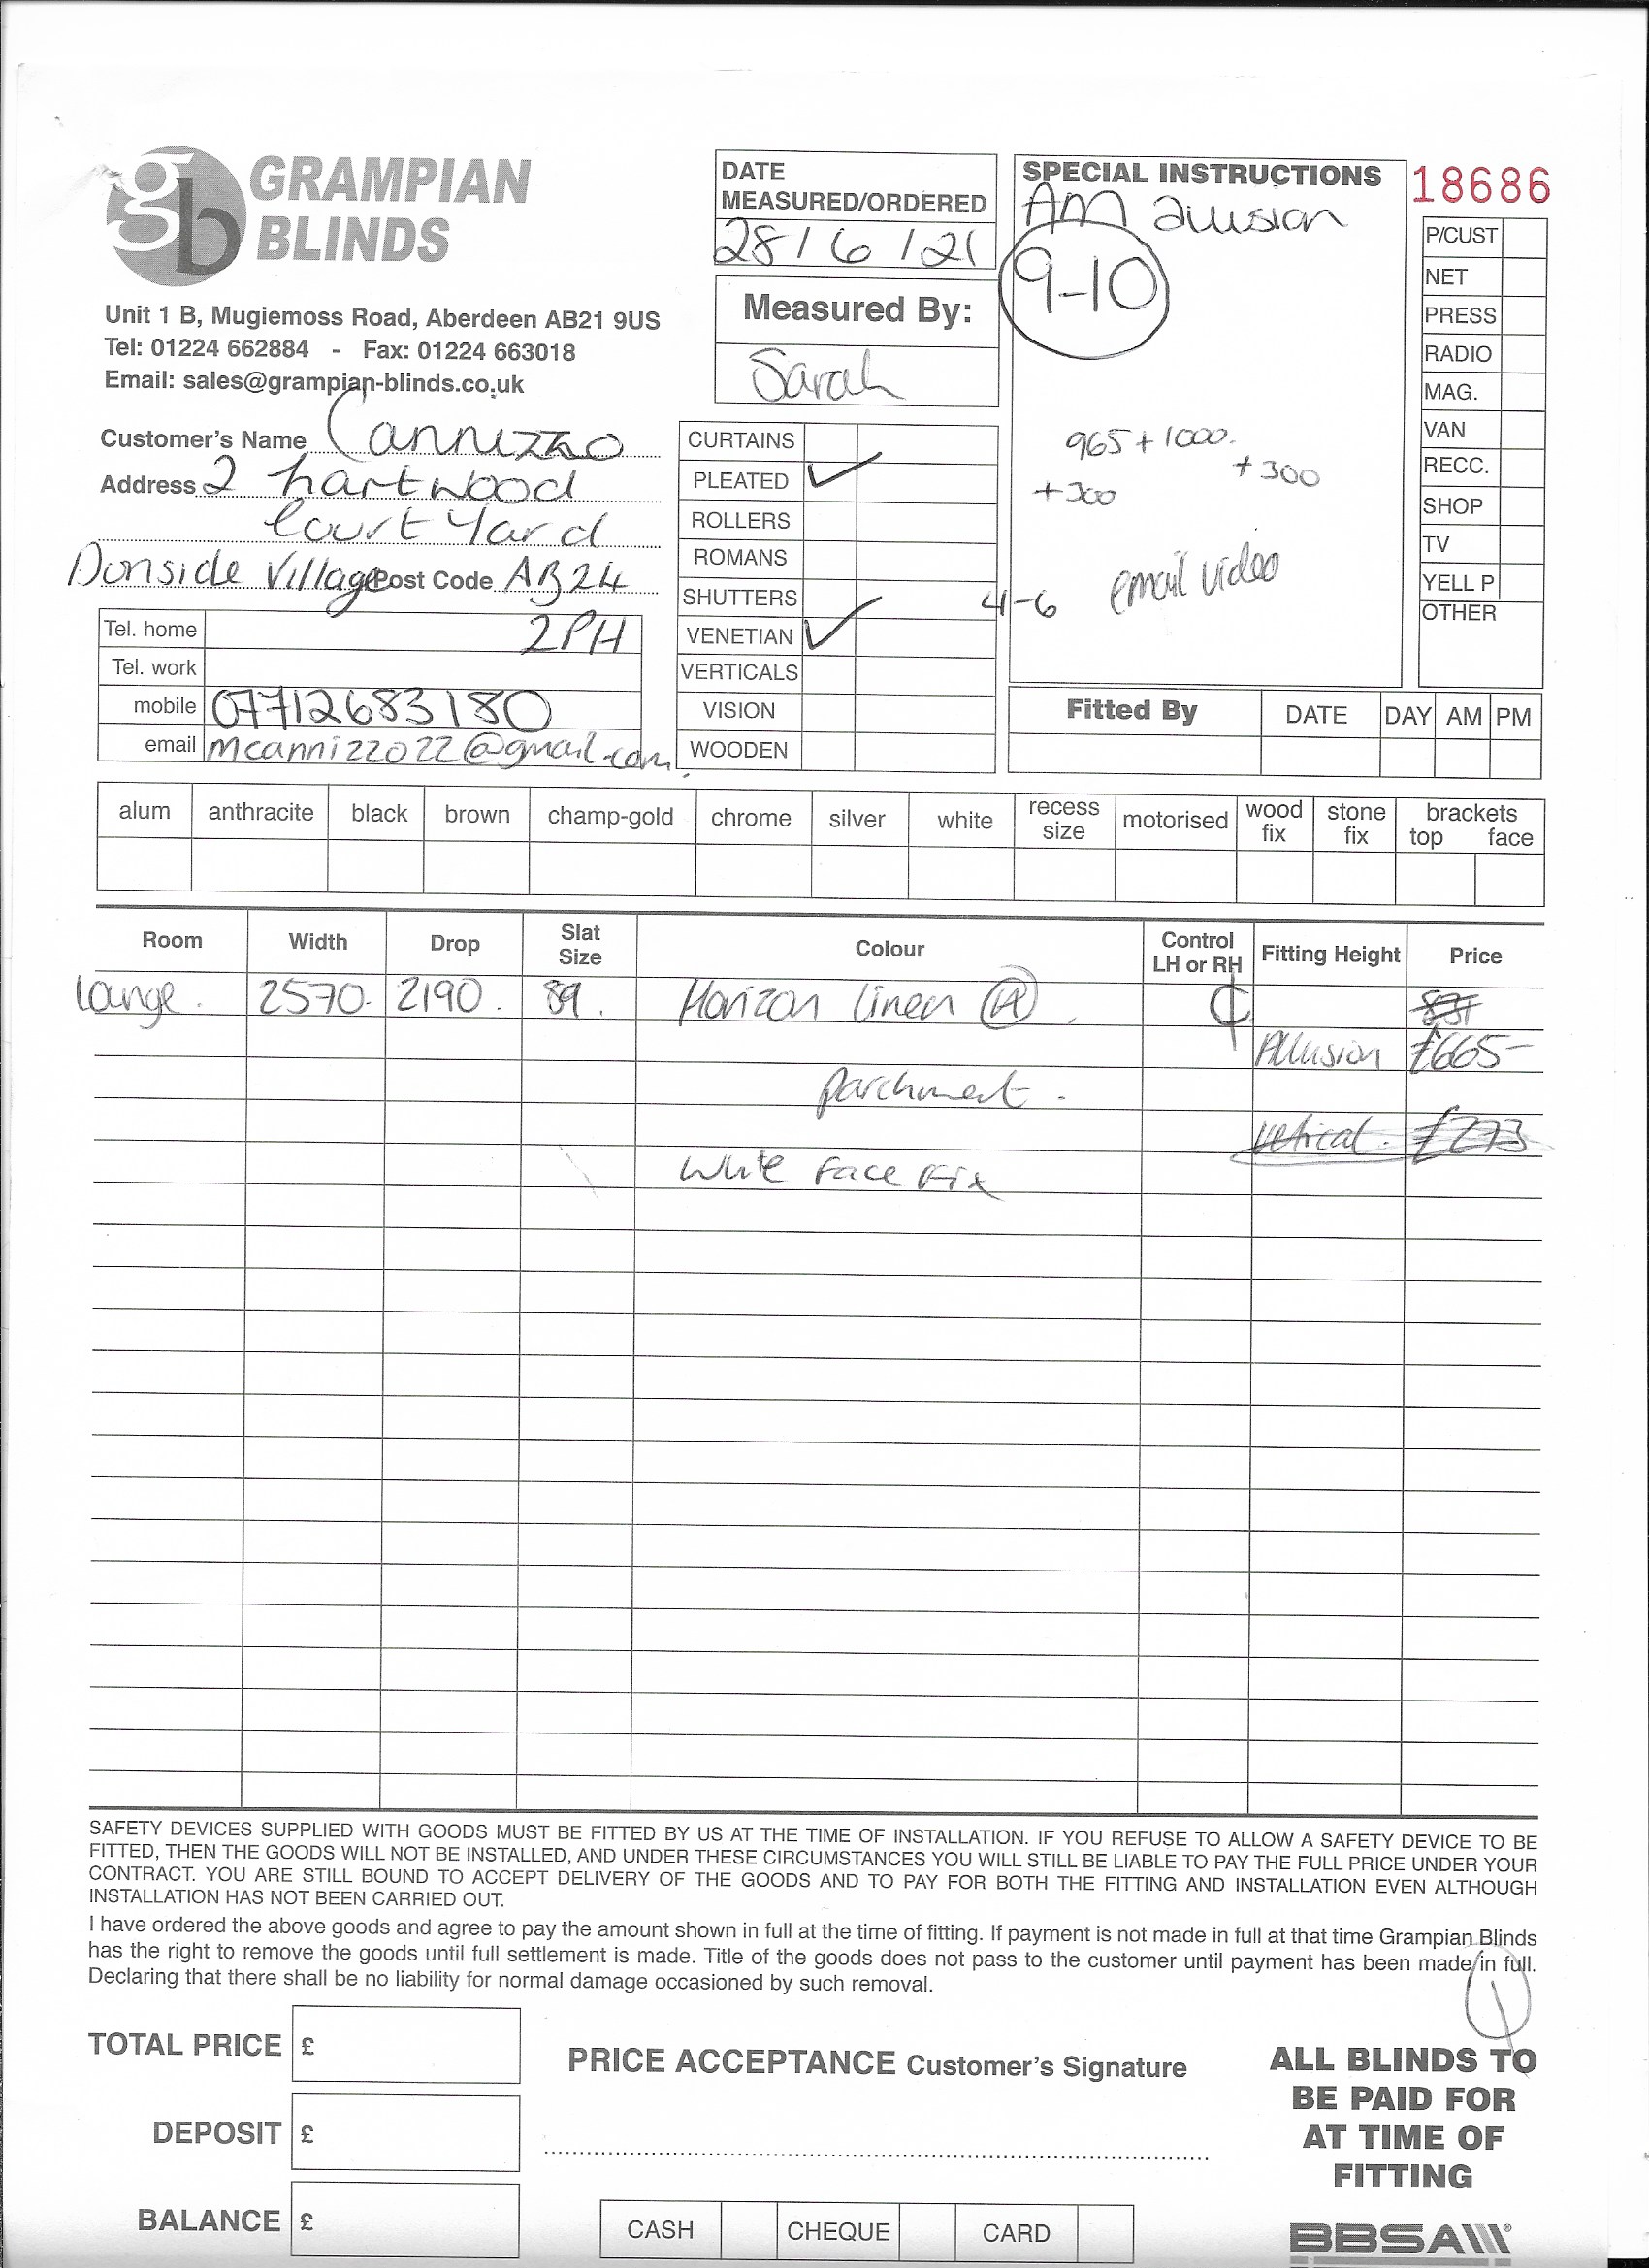 GRAMPIAN
BLINDS
Unit 1 B, Mugiemoss Road, Aberdeen AB21 9US
Tel: 01224 662884 - Fax: 01224 663018
Email: sales@grampian-blinds.co.uk
DATE
MEASURED/ORDERED
28/6/21
Measured By:
Sarah
SPECIAL INSTRUCTIONS
AM allusion
9-10
965 + 1000.
+300 +300
email video
4-6
18686
P/CUST
NET
PRESS
RADIO
MAG.
VAN
RECC.
SHOP
TV
YELL P
OTHER
Customer's Name Cannizzo
Address 2 hartwood
Court Yard
Donside Village Post Code AB24
2PH
Tel. home
Tel. work
mobile 07712683180
email mcannizzo22@gmail.com
CURTAINS
PLEATED ✓
ROLLERS
ROMANS
SHUTTERS
VENETIAN ✓
VERTICALS
VISION
WOODEN
Fitted By DATE DAY AM PM
alum anthracite black brown champ-gold chrome silver white recess size motorised wood fix stone fix brackets top face
Room Width Drop Slat Size Colour Control LH or RH Fitting Height Price
Lounge. 2570. 2190. 89. Horizon linen (A)
Allusion £665-
parchment.
vertical. £273
White Face Fix
SAFETY DEVICES SUPPLIED WITH GOODS MUST BE FITTED BY US AT THE TIME OF INSTALLATION. IF YOU REFUSE TO ALLOW A SAFETY DEVICE TO BE
FITTED, THEN THE GOODS WILL NOT BE INSTALLED, AND UNDER THESE CIRCUMSTANCES YOU WILL STILL BE LIABLE TO PAY THE FULL PRICE UNDER YOUR
CONTRACT. YOU ARE STILL BOUND TO ACCEPT DELIVERY OF THE GOODS AND TO PAY FOR BOTH THE FITTING AND INSTALLATION EVEN ALTHOUGH
INSTALLATION HAS NOT BEEN CARRIED OUT.
I have ordered the above goods and agree to pay the amount shown in full at the time of fitting. If payment is not made in full at that time Grampian Blinds
has the right to remove the goods until full settlement is made. Title of the goods does not pass to the customer until payment has been made in full.
Declaring that there shall be no liability for normal damage occasioned by such removal.
TOTAL PRICE £
DEPOSIT £
BALANCE £
PRICE ACCEPTANCE Customer's Signature
CASH CHEQUE CARD
ALL BLINDS TO
BE PAID FOR
AT TIME OF
FITTING
BBSA